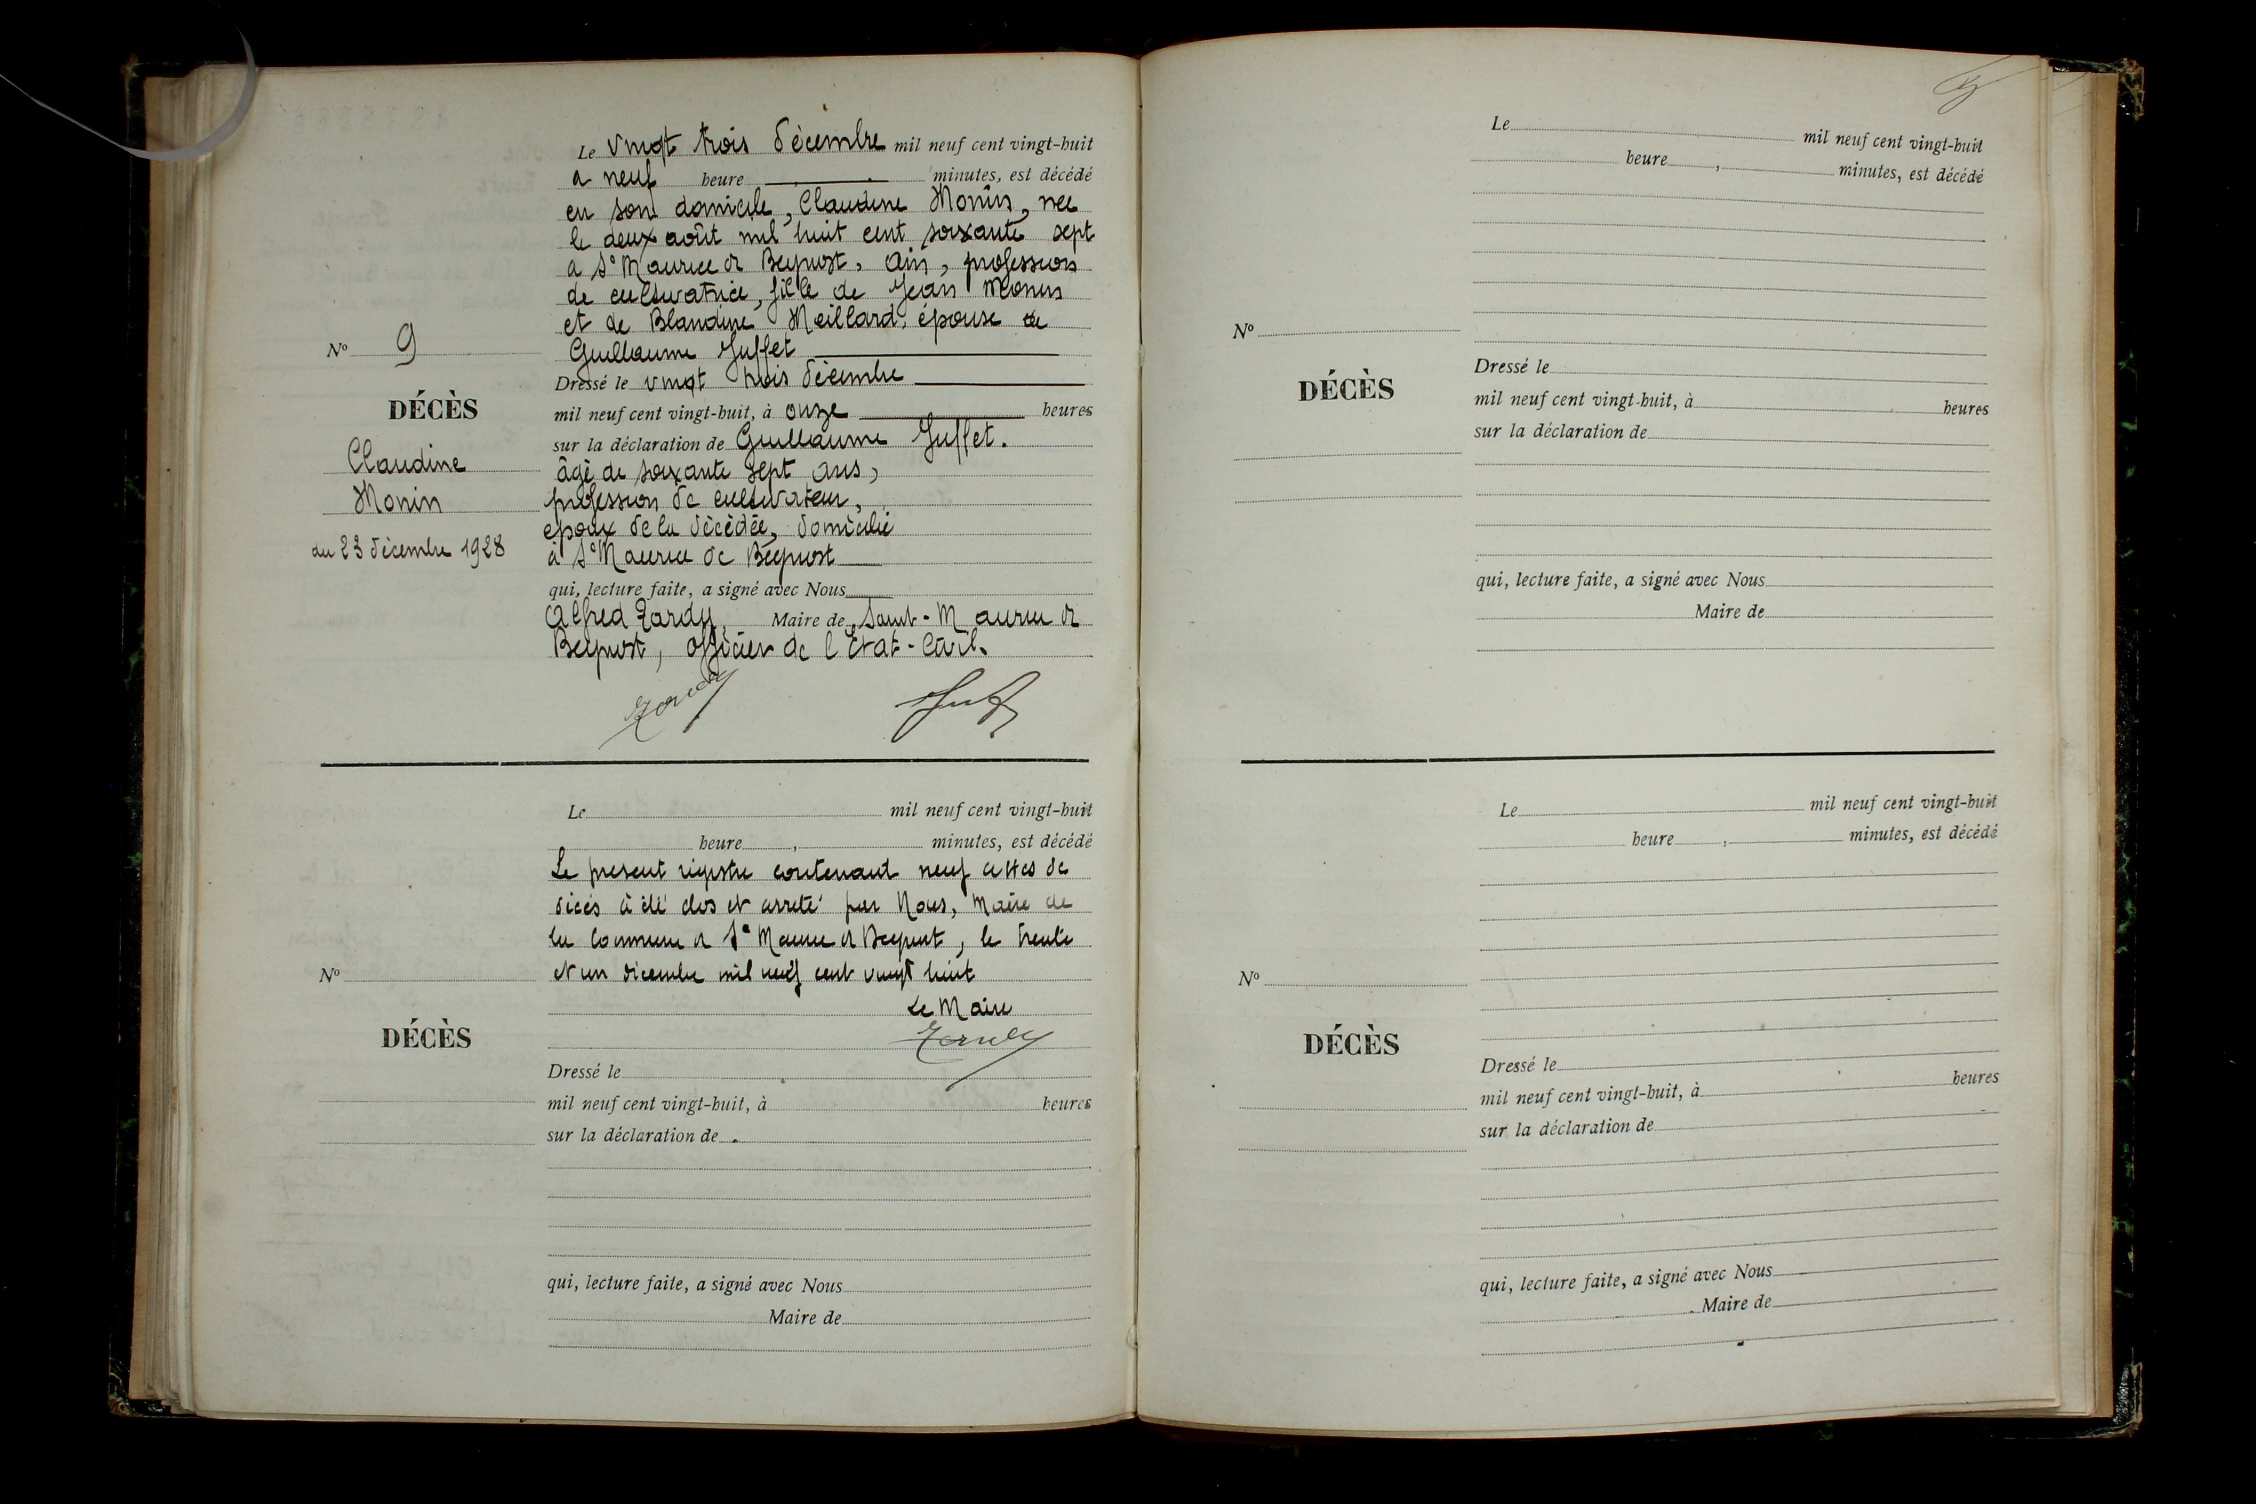 Le vingt trois décembre mil neuf cent vingt-huit
a neuf heure minutes, est décédé
en son domicile, Claudine Monin, née
le deux août mil huit cent soixante sept
a St Maurice de Beynost, Ain, profession
de cultivatrice, fille de Jean Monin
et de Blandine Meillard, épouse de
Guillaume Juffet
Dressé le vingt trois décembre
mil neuf cent vingt-huit, à onze heures
sur la déclaration de Guillaume Juffet.
âgé de soixante sept ans,
profession de cultivateur,
epoux de la décédée, domicilié
à St Maurice de Beynost
qui, lecture faite, a signé avec Nous
Alfred Tardy, Maire de Saint-Maurice de
Beynost, officier de l'Etat-Civil.
No 9
DÉCÈS
Claudine
Monin
du 23 décembre 1928
Le mil neuf cent vingt-huit
heure , minutes, est décédé
Le present registre contenant neuf actes de
décés à été clos et arreté par Nous, Maire de
la Commune de St Maurice de Beynost, le trente
et un décembre mil neuf cent vingt huit
Le Maire
No
DÉCÈS
Dressé le
mil neuf cent vingt-huit, à heures
sur la déclaration de
qui, lecture faite, a signé avec Nous
Maire de
Le mil neuf cent vingt-huit
heure , minutes, est décédé
No
DÉCÈS
Dressé le
mil neuf cent vingt-huit, à heures
sur la déclaration de
qui, lecture faite, a signé avec Nous
Maire de
Le mil neuf cent vingt-huit
heure , minutes, est décédé
No
DÉCÈS
Dressé le
mil neuf cent vingt-huit, à heures
sur la déclaration de
qui, lecture faite, a signé avec Nous
Maire de